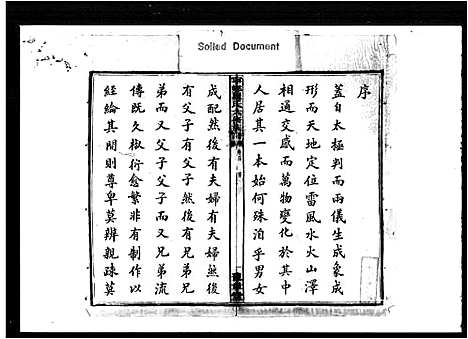 Soiled Document
序
蓋自太極判而兩儀生成象成
形而天地定位雷風水火山澤
相通交感而萬物變化於其中
人居其一本始何殊洎乎男女
成配然後有夫婦有夫婦然後
有父子有父子然後有弟兄
弟而又父子父子而又兄弟流
傳既久椒衍愈繁非有制作以
經綸其間則尊卑莫辨親疎莫